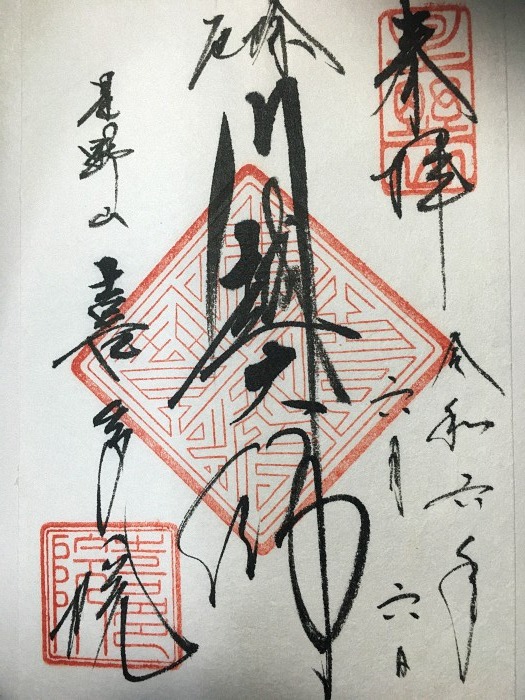 奉拝
令和六年
六月六日
厄除
川越大師
星野山
喜多院